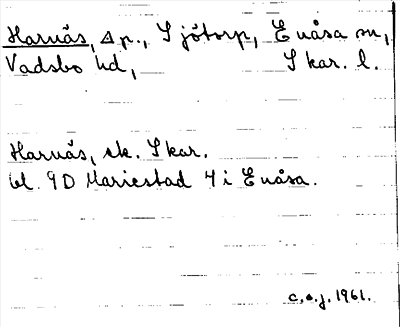 Harnäs, Δ p., Sjötorp, Enåsa sn,
Vadsbo hd, Skar. l.
Harnäs, ek. Skar.
bl. 9D Mariestad 4 i Enåsa.
c.o.j. 1961.